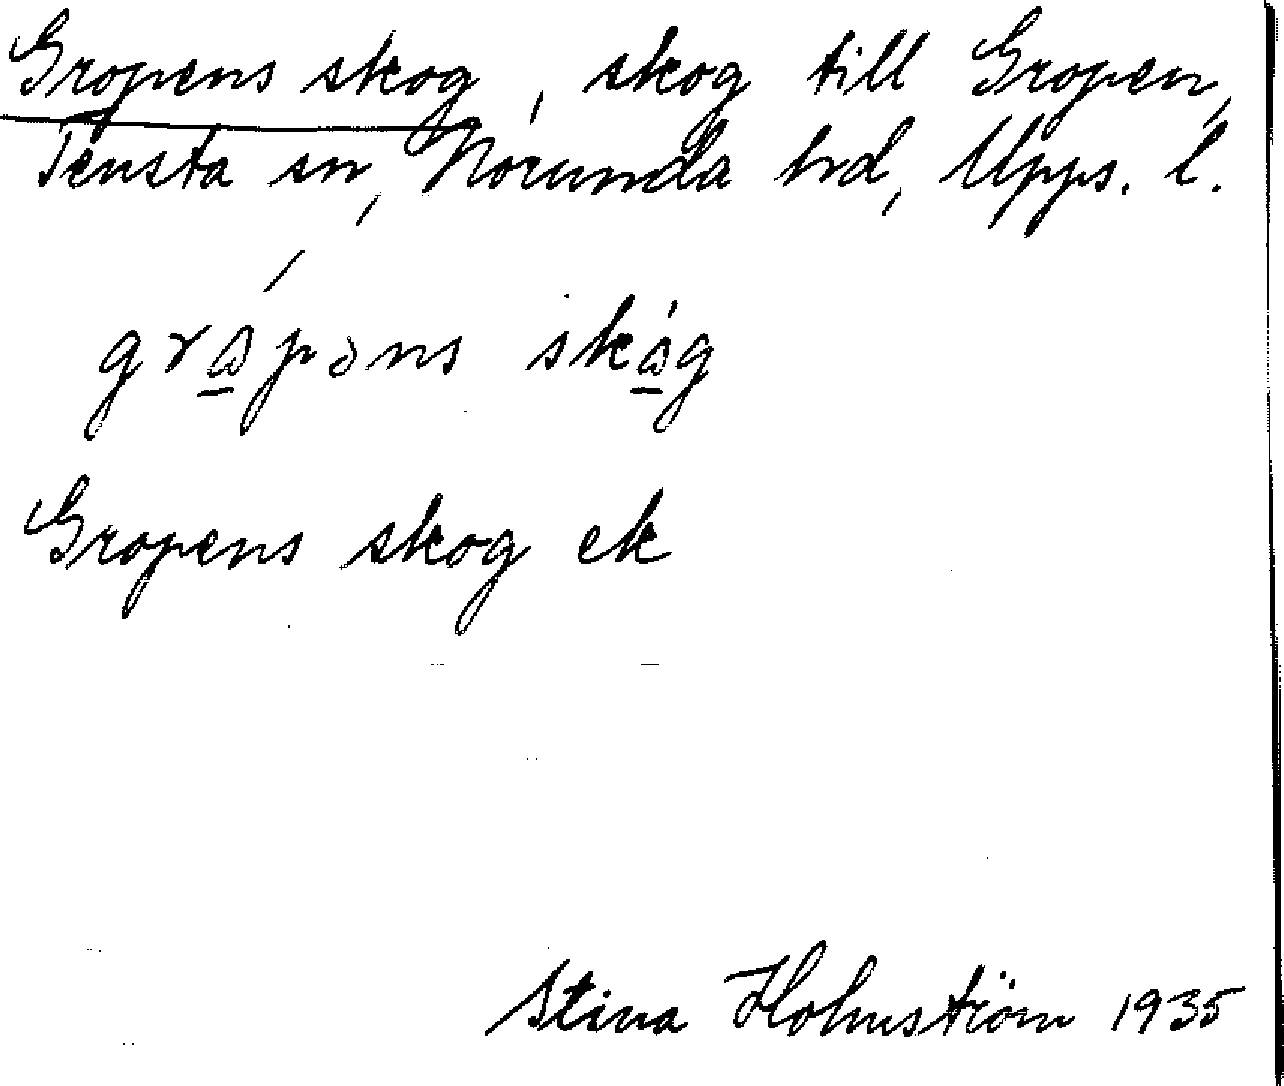 Gropens skog, skog till Gropen,
Tensta sn, Norunda hd, Upps. l.
Gropens skog ek
Stina Holmström 1935